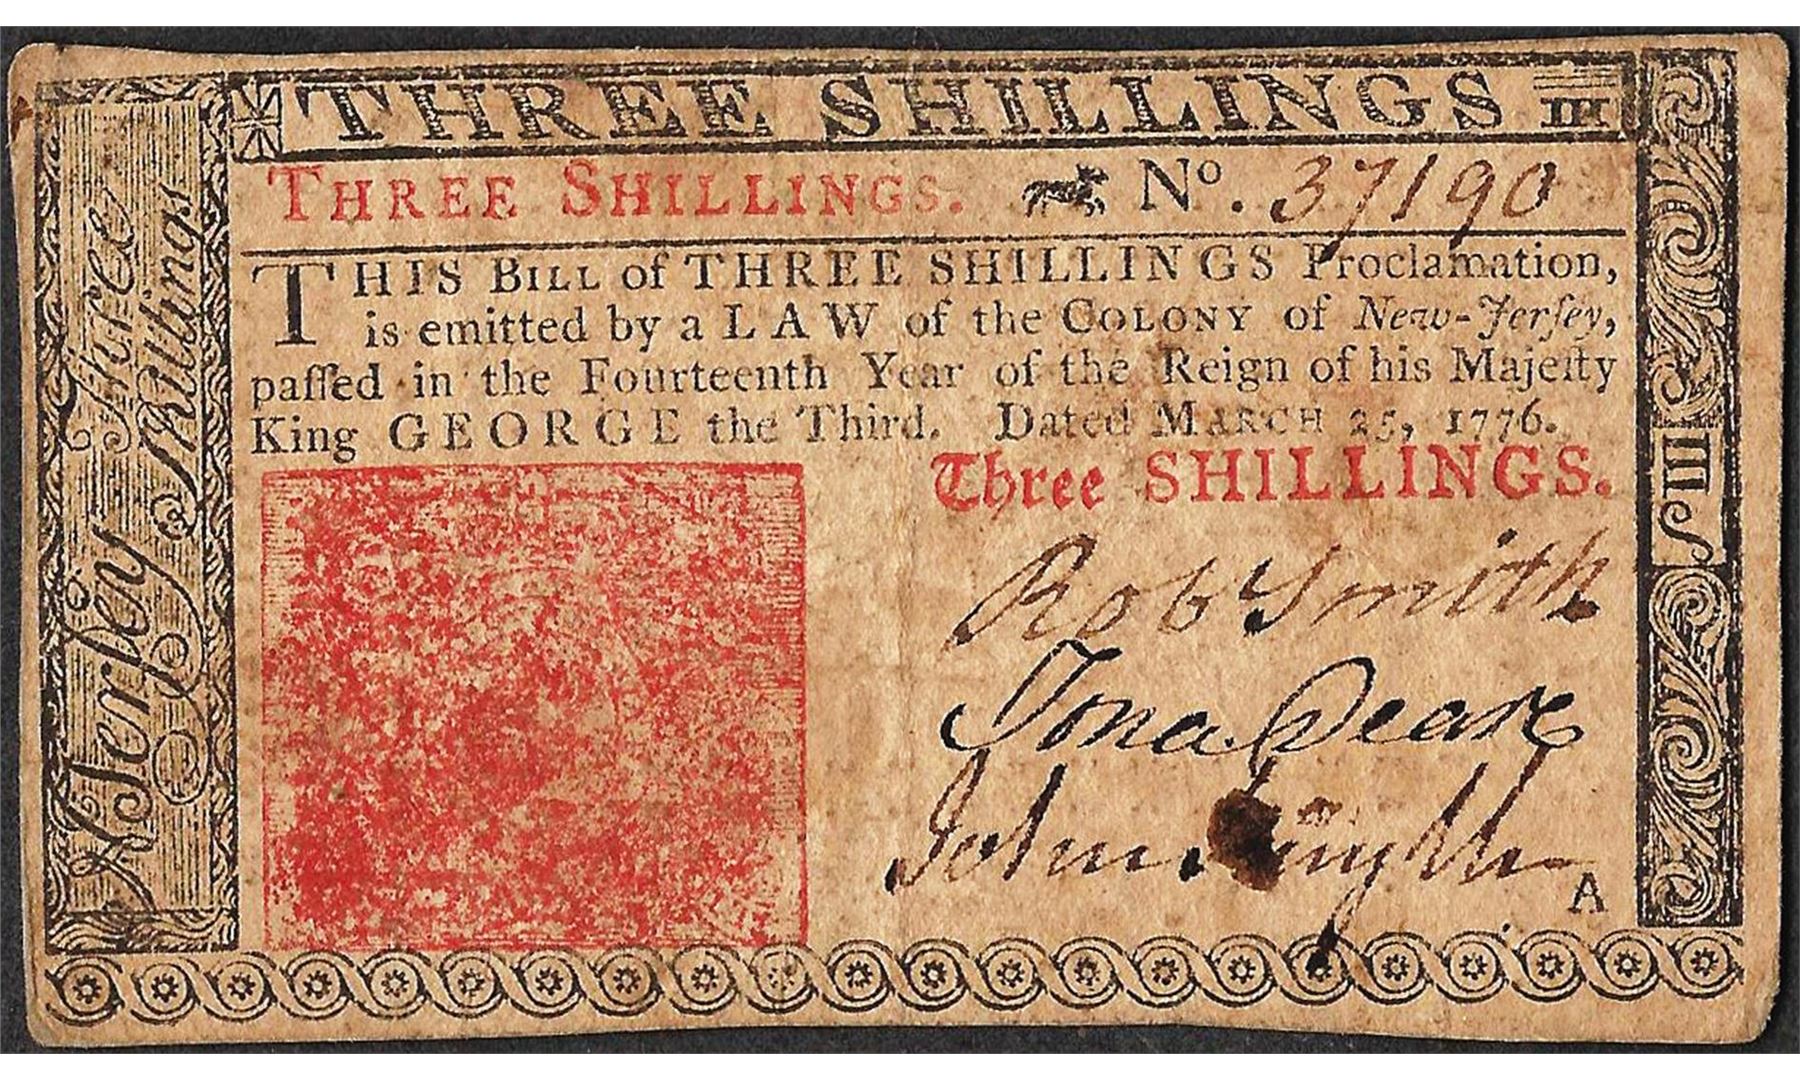 THREE SHILLINGS III
THREE SHILLINGS. No. 37190
THIS BILL of THREE SHILLINGS Proclamation,
is emitted by a LAW of the COLONY of New-Jerſey,
paſſed in the Fourteenth Year of the Reign of his Majeſty
King GEORGE the Third. Dated MARCH 25, 1776.
Three SHILLINGS.
Rob Smith
Jona Deare
John Smyth
A
N Jerſey Three
Shillings
III S